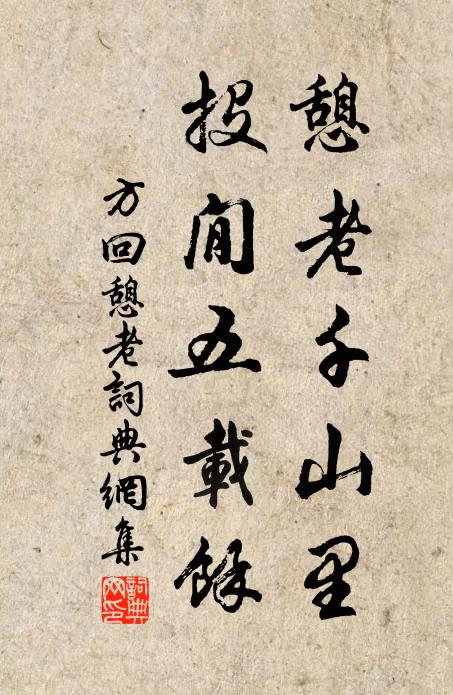 憩老千山里
投閒五載餘
方回憩老詞典網集
詞典网印